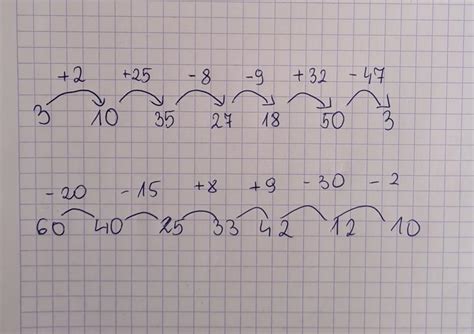 +2 +25 -8 -9 +32 -47
3 10 35 27 18 50 3
-20 -15 +8 +9 -30 -2
60 40 25 33 42 12 10